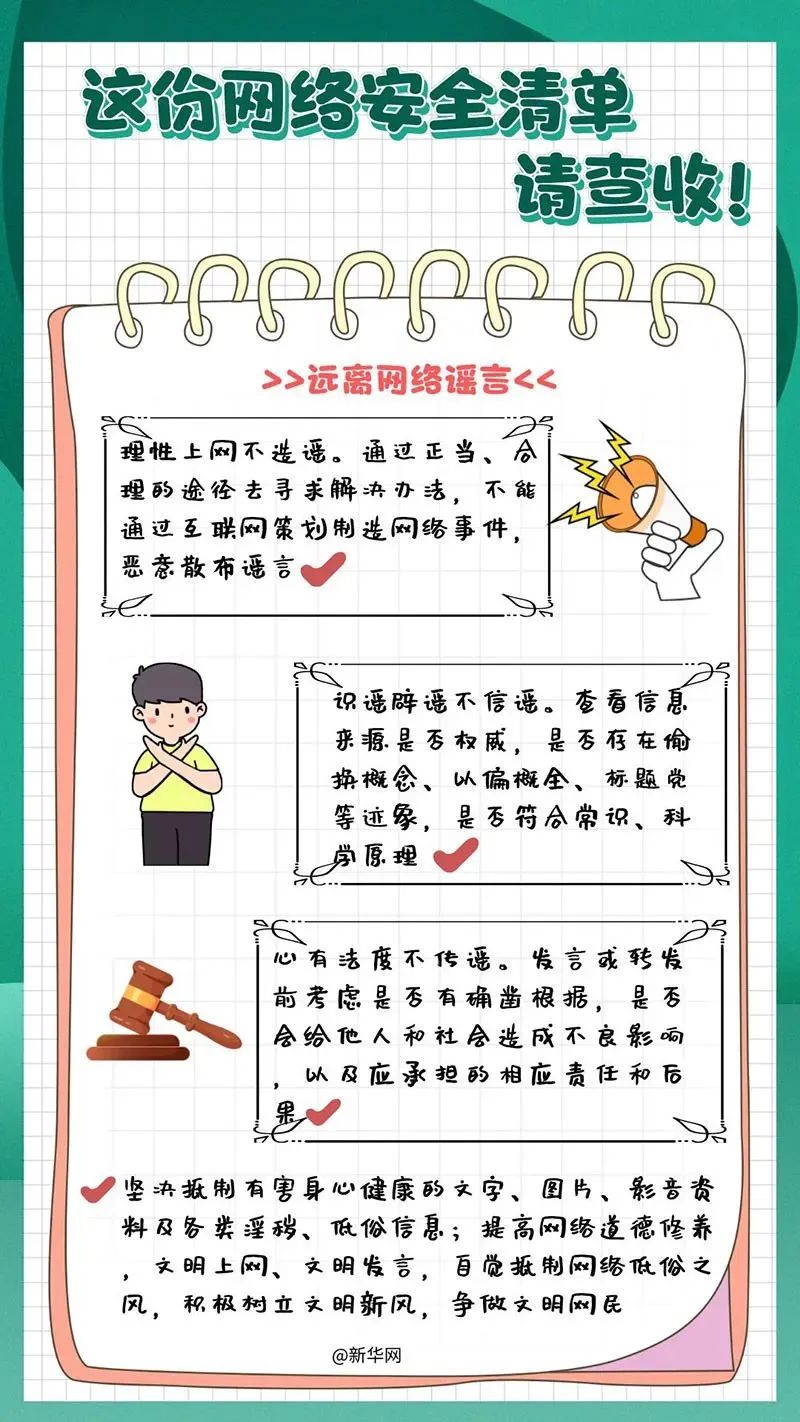 这份网络安全清单
请查收!
>>远离网络谣言<<
理性上网不造谣。通过正当、合
理的途径去寻求解决办法，不能
通过互联网策划制造网络事件，
恶意散布谣言
识谣辟谣不信谣。查看信息
来源是否权威，是否存在偷
换概念、以偏概全、标题党
等迹象，是否符合常识、科
学原理
心有法度不传谣。发言或转发
前考虑是否有确凿根据，是否
会给他人和社会造成不良影响
，以及应承担的相应责任和后
果
坚决抵制有害身心健康的文字、图片、影音资
料及各类淫秽、低俗信息；提高网络道德修养
，文明上网、文明发言，自觉抵制网络低俗之
风，积极树立文明新风，争做文明网民
@新华网